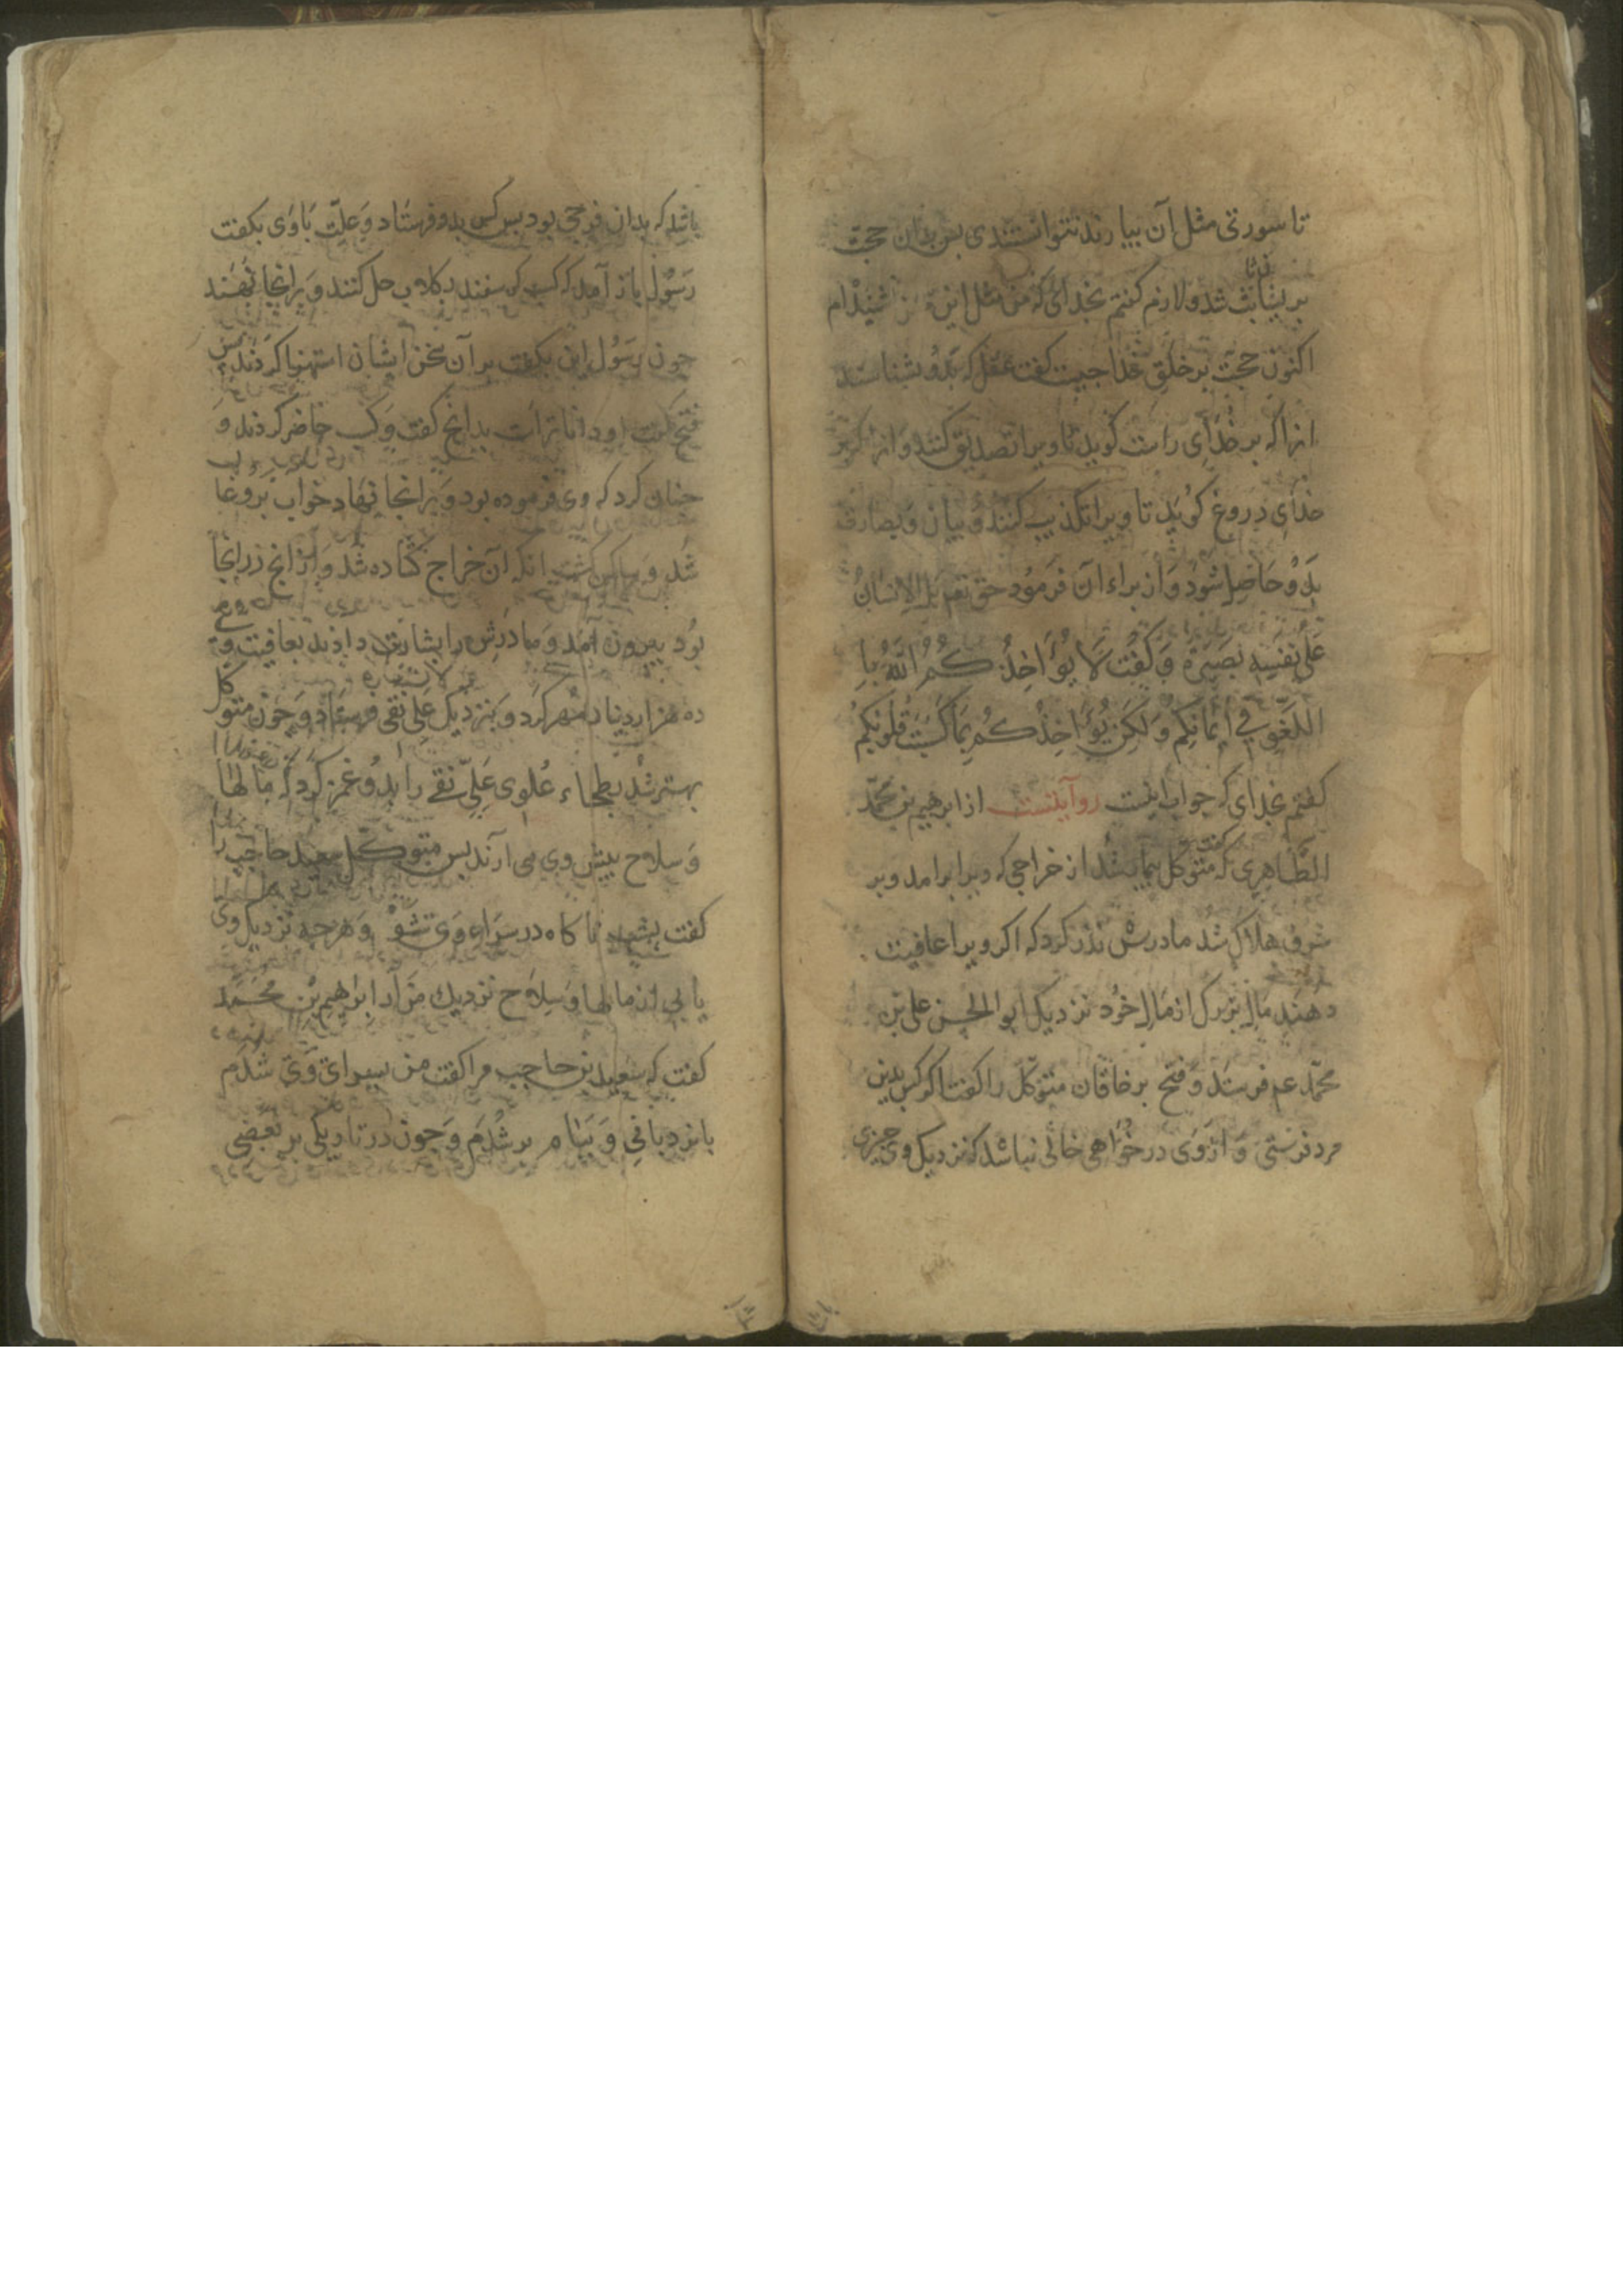 تا سورتی مثل آن بیارند نتوانستندی بس بدان حجت
بریشان ثابت شد و لازم کفتم بخدای که من مثل این نشنیدام
اکنون حجت بر خلق خدا جیست کفت عقل که بدو بشناسند
انرا که بر خدای راست کوید تا ویرا تصدیق کنند و انرا که بر
خدای دروغ کوید تا ویرا تکذیب کنند و بیان و بصارت
بدو حاصل شود و از براء آن فرمود حق تعم بل الانسان
علی نفسه بصیرة و کفت لا یؤاخذکم الله با
اللغو فی ایمانکم ولکن یؤاخذکم بما کسبت قلوبکم
کفتم بخدای که جواب اینست روایتست از ابرهیم بن محمد
الطاهری که کفت متوکل بیمار شد از خراجی که ویرا برامد و بر
شرف هلاک شد مادرش نذر کرد که اکر ویرا عافیت
دهند مال بزرک از مال خود نزدیک ابو الحسن علی بن
محمد عم فرستد و فتح بر خاقان متوکل را کفت اکر کس بدین
مرد فرستی و از وی درخواهی خالی نباشد که نزدیک وی جیزی
باشد که بدان فرجی بود بس کس بدو فرستاد و علت باوی بکفت
رسول باز آمد که کسب کوسفند بکلاب حل کنند و برانجا نهند
جون رسول این بکفت بر آن سخن ایشان استهزا کردند بس
فتح کفت او داناتراست بدانج کفت و کسب حاضر کردند و
جنان کرد که وی فرموده بود و برانجا نهاد خواب برو غا
شد و ساکن کشت انکه آن خراج کشاده شد و از انج درانجا
بود بیرون آمد و مادرش را بشارت دادند بعافیت وی
ده هزار دینار مهر کرد و بنزدیک علی نقی فرستاد و جون متوکل
بهتر شد بطحاء علوی علی نقی را بدو غمز کرد که مالها
و سلاح بیش وی می آرند بس متوکل سعید حاجب را
کفت بشب ناکاه در سراء وی شو و هرجه نزدیک وی
یابی از مالها و سلاح نزدیک من آر ابرهیم بن محمد
کفت که سعید بن حاجب مرا کفت من بسرای وی شدم
با نردبانی و ببام بر شدم و جون در تاریکی بر بعضی